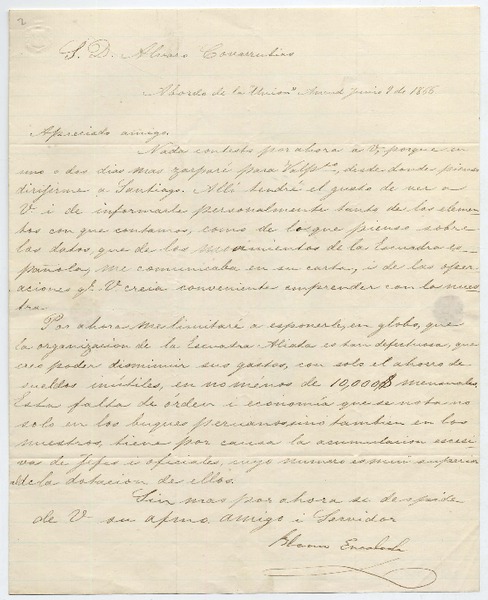 2
S. D. Alvaro Covarrubias
Abordo de la "Union" Ancud Junio 9 de 1866
Apreciado amigo.
Nada contesto por ahora a V. porque en
uno o dos dias mas zarparé para Valpso, desde donde pienso
dirijirme a Santiago. Allí tendré el gusto de ver a
V i de informarle personalmente tanto de los elemen-
tos con que contamos, como de los que pienso sobre
los datos, que de los movimientos de la Escuadra es-
pañola, me comunicaba en su carta, i de las oper-
aciones qe. V creia conveniente emprender con la nues-
tra.
Por ahora me limitaré a esponerle, en globo, que
la organizacion de la Escuadra Aliada es tan defectuosa, que
creo poder disminuir sus gastos, con solo el ahorro de
sueldos inútiles, en no ménos de 10,000$ mensuales.
Esta falta de órden i economía que se nota no
solo en los buques peruanos sino tambien en los
nuestros, tiene por causa la acumulacion escesi-
va de Jefes i oficiales, cuyo número es mui superior
al de la dotacion de ellos.
Sin mas por ahora se despide
de V su afmo. amigo i Servidor
Blanco Encalada